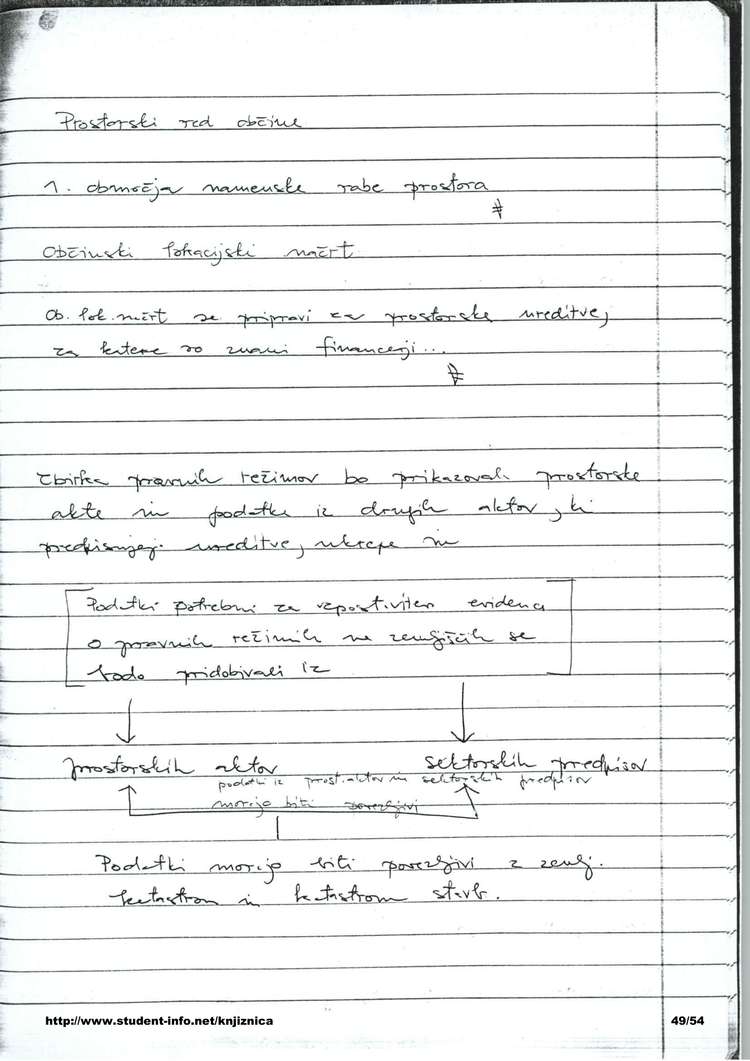 Prostorski red občine
1. območja namenske rabe prostora
#
Občinski lokacijski načrt
Ob. lok. načrt se pripravi za prostorske ureditve,
za katere so znani financerji...
#
Zbirka pravnih režimov bo prikazovala prostorske
akte in podatke iz drugih aktov, ki
predpisujejo ureditve, ukrepe in
Podatki potrebni za vzpostavitev evidenc
o pravnih režimih na zemljiščih se
bodo pridobivali iz
prostorskih aktov sektorskih predpisov
podatki iz prost. aktov in sektorskih predpisov
morajo biti povezljivi
Podatki morajo biti povezljivi z zemlj.
katastrom in katastrom stavb.
http://www.student-info.net/knjiznica 49/54